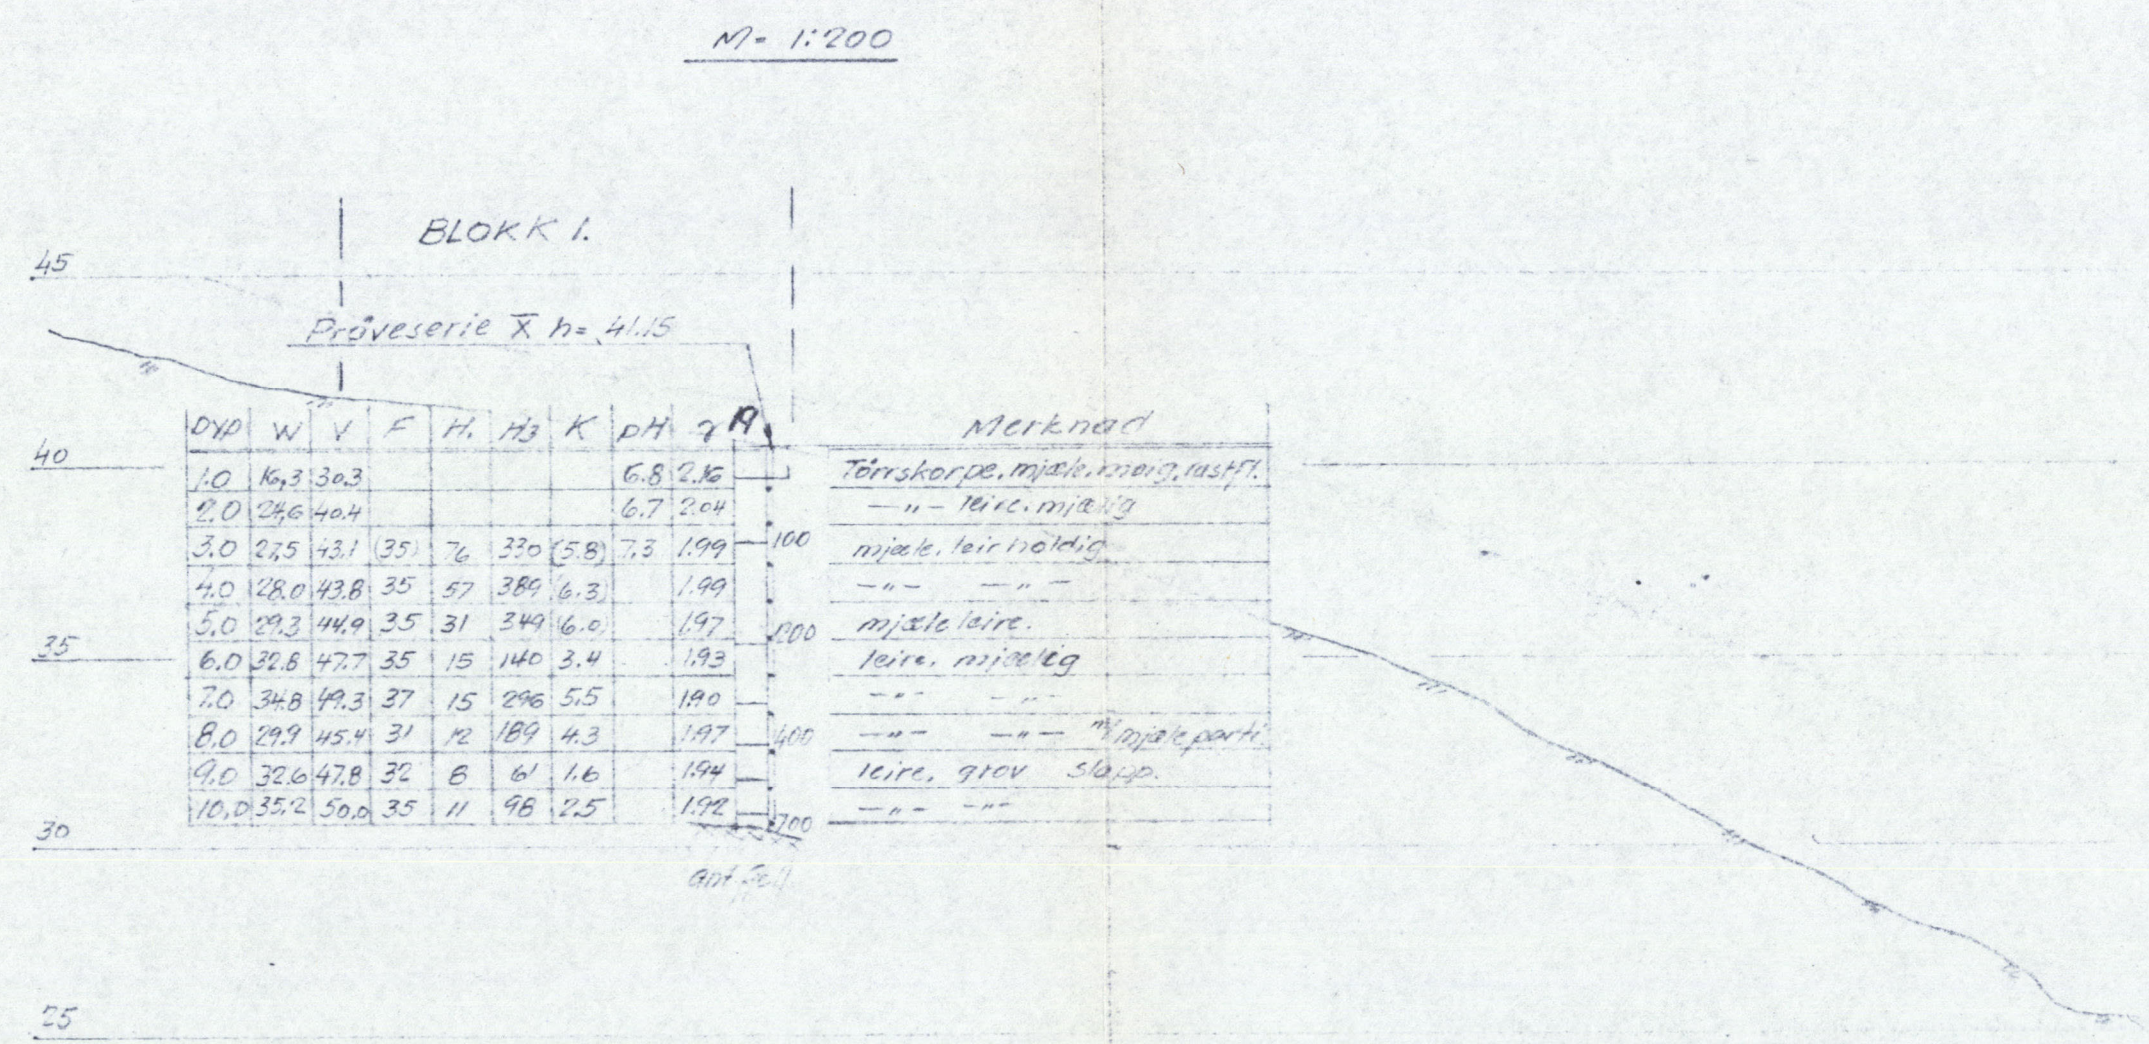 M= 1:200
BLOKK 1.
45
Prøveserie X h= 41.15
DYP W V F H. H3 K pH γ A Merknad
40
1.0 16,3 30.3 6.8 2.16 Törrskorpe. mjæle.
2.0 24,6 40.4 6.7 2.04 —"— leire. mjælig
3.0 27,5 43,1 (35) 76 330 (5.8) 7,3 1.99 100 mjæle. leirholdig
4.0 28.0 43.8 35 57 389 (6.3) 1.99 —"— —"—
5.0 29.3 44.9 35 31 349 (6.0) 1.97 200 mjæleleire.
35
6.0 32.8 47.7 35 15 140 3.4 1.93 leire. mjælig
7.0 34.8 49.3 37 15 296 5,5 1.90 —"— —"—
8.0 29.9 45.4 31 12 189 4.3 1.97 400 —"— —"— m/ mjæleparti
9.0 32.6 47.8 32 8 61 1.6 1.94 leire. grov slapp.
10.0 35.2 50.0 35 11 98 2.5 1.92 700 —"— —"—
30
ant. fjell
25